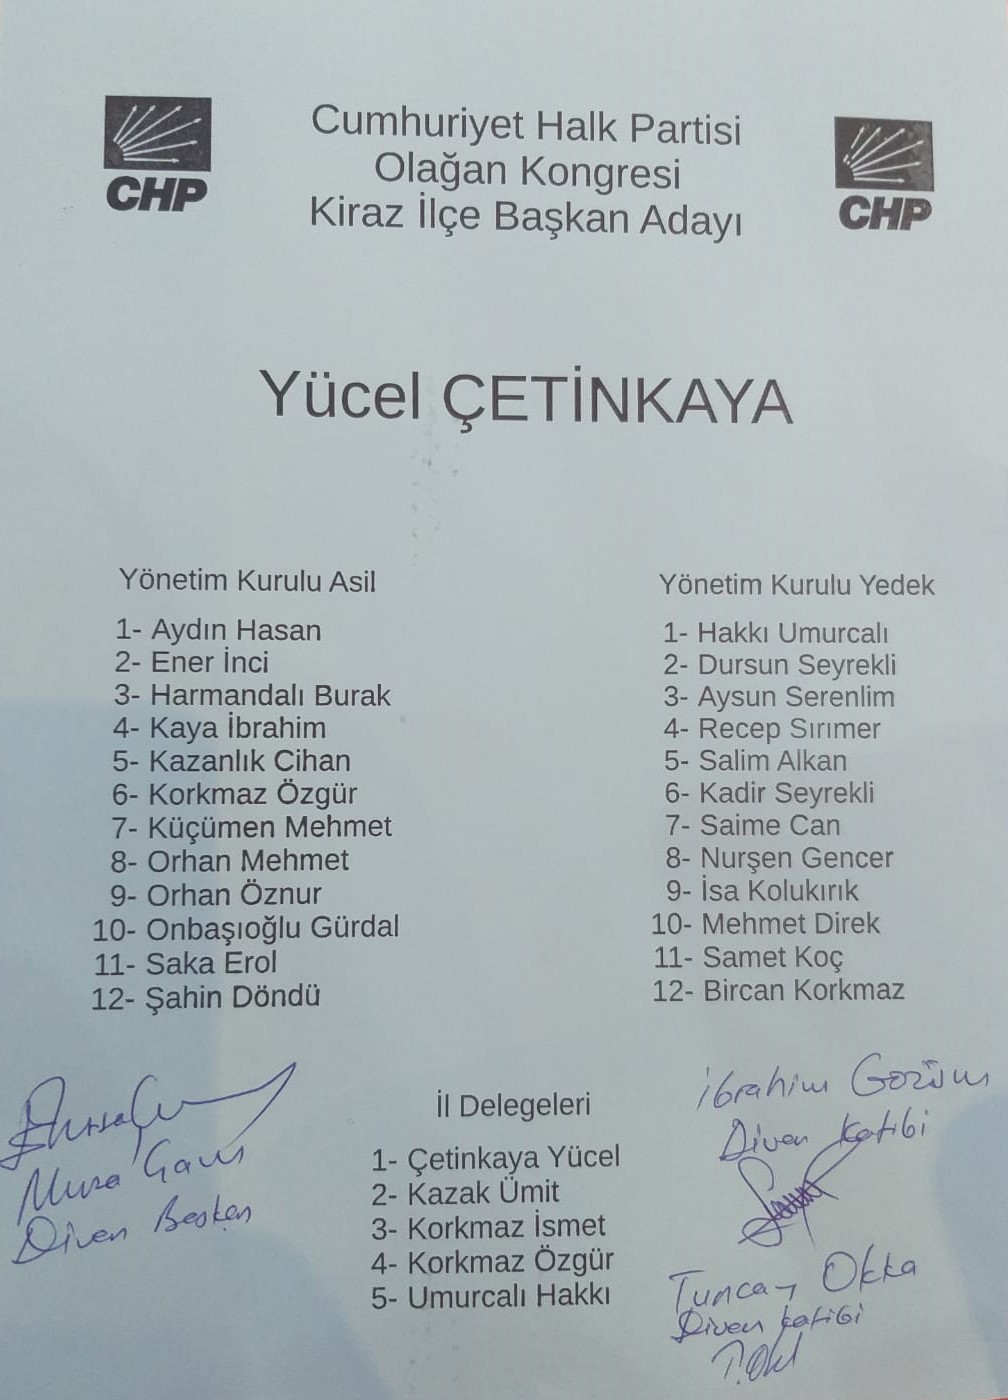 CHP
Cumhuriyet Halk Partisi
Olağan Kongresi
Kiraz İlçe Başkan Adayı
CHP
Yücel ÇETİNKAYA
Yönetim Kurulu Asil
1- Aydın Hasan
2- Ener İnci
3- Harmandalı Burak
4- Kaya İbrahim
5- Kazanlık Cihan
6- Korkmaz Özgür
7- Küçümen Mehmet
8- Orhan Mehmet
9- Orhan Öznur
10- Onbaşıoğlu Gürdal
11- Saka Erol
12- Şahin Döndü
Yönetim Kurulu Yedek
1- Hakkı Umurcalı
2- Dursun Seyrekli
3- Aysun Serenlim
4- Recep Sırımer
5- Salim Alkan
6- Kadir Seyrekli
7- Saime Can
8- Nurşen Gencer
9- İsa Kolukırık
10- Mehmet Direk
11- Samet Koç
12- Bircan Korkmaz
İl Delegeleri
1- Çetinkaya Yücel
2- Kazak Ümit
3- Korkmaz İsmet
4- Korkmaz Özgür
5- Umurcalı Hakkı
Divan Başkan
İbrahim
Divan Katibi
Tuncay Okka
Divan katibi